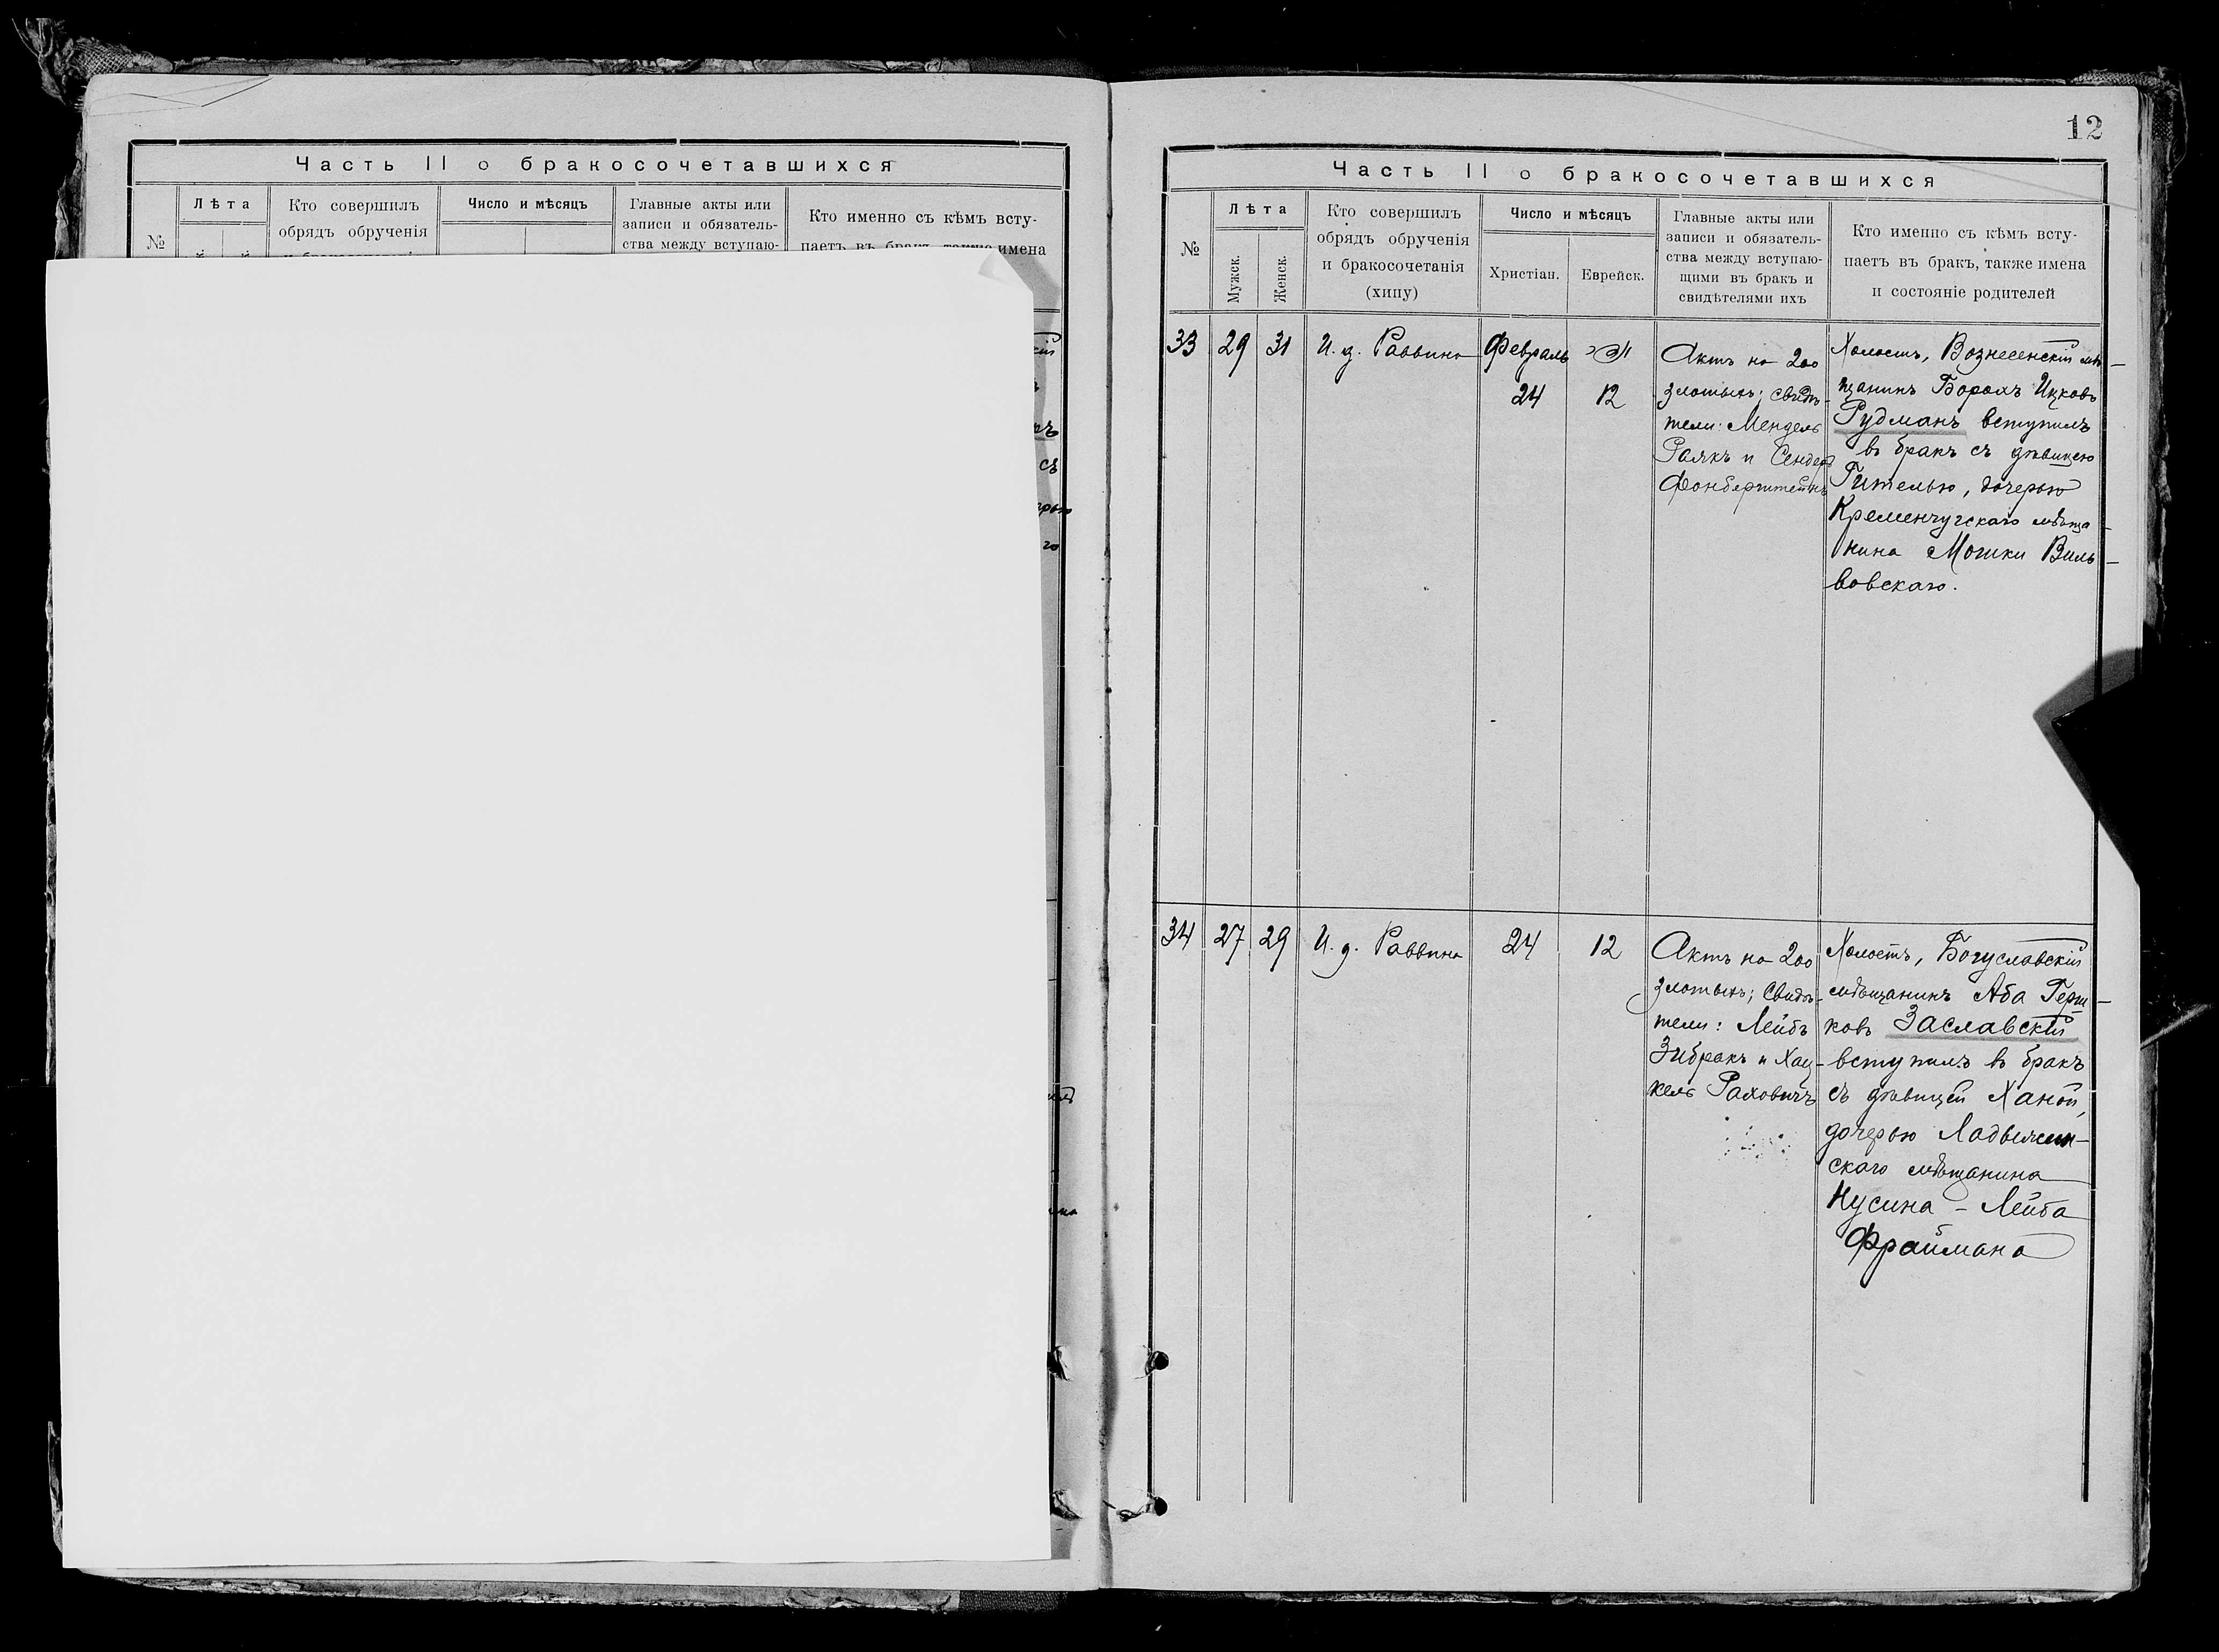 Часть II о бракосочетавшихся
№
Лѣта
Кто совершилъ
обрядъ обрученія
Число и мѣсяцъ
Главные акты или
записи и обязатель-
ства между вступаю-
Кто именно съ кѣмъ всту-
паетъ въ бракъ, также имена
12
Часть II о бракосочетавшихся
№
Лѣта
Мужск.
Женск.
Кто совершилъ
обрядъ обрученія
и бракосочетанія
(хипу)
Число и мѣсяцъ
Христіан.
Еврейск.
Главные акты или
записи и обязатель-
ства между вступаю-
щими въ бракъ и
свидѣтелями ихъ
Кто именно съ кѣмъ всту-
паетъ въ бракъ, также имена
и состояніе родителей
33
29
31
И. д. Раввина
Февраль
24
12
Актъ на 200
злотыхъ; свидѣ-
тели: Мендель
и
Холостъ, Вознесенскій мѣ-
щанинъ Борохъ Ицковъ
Рудманъ вступилъ
въ бракъ съ дѣвицею
Гителью, дочерью
Кременчугскаго мѣща-
нина Мошки Виль-
вовскаго.
34
27
29
И. д. Раввина
24
12
Актъ на 200
злотыхъ; Свидѣ-
тели: Лейбъ
Зибракъ и Хац-
кель Раховичъ
Холостъ, Богуславскій
мѣщанинъ Аба Герш-
ковъ Заславскій
вступилъ въ бракъ
съ дѣвицей Ханой,
дочерью Ладыжин-
скаго мѣщанина
Нусина-Лейба
Фраймана